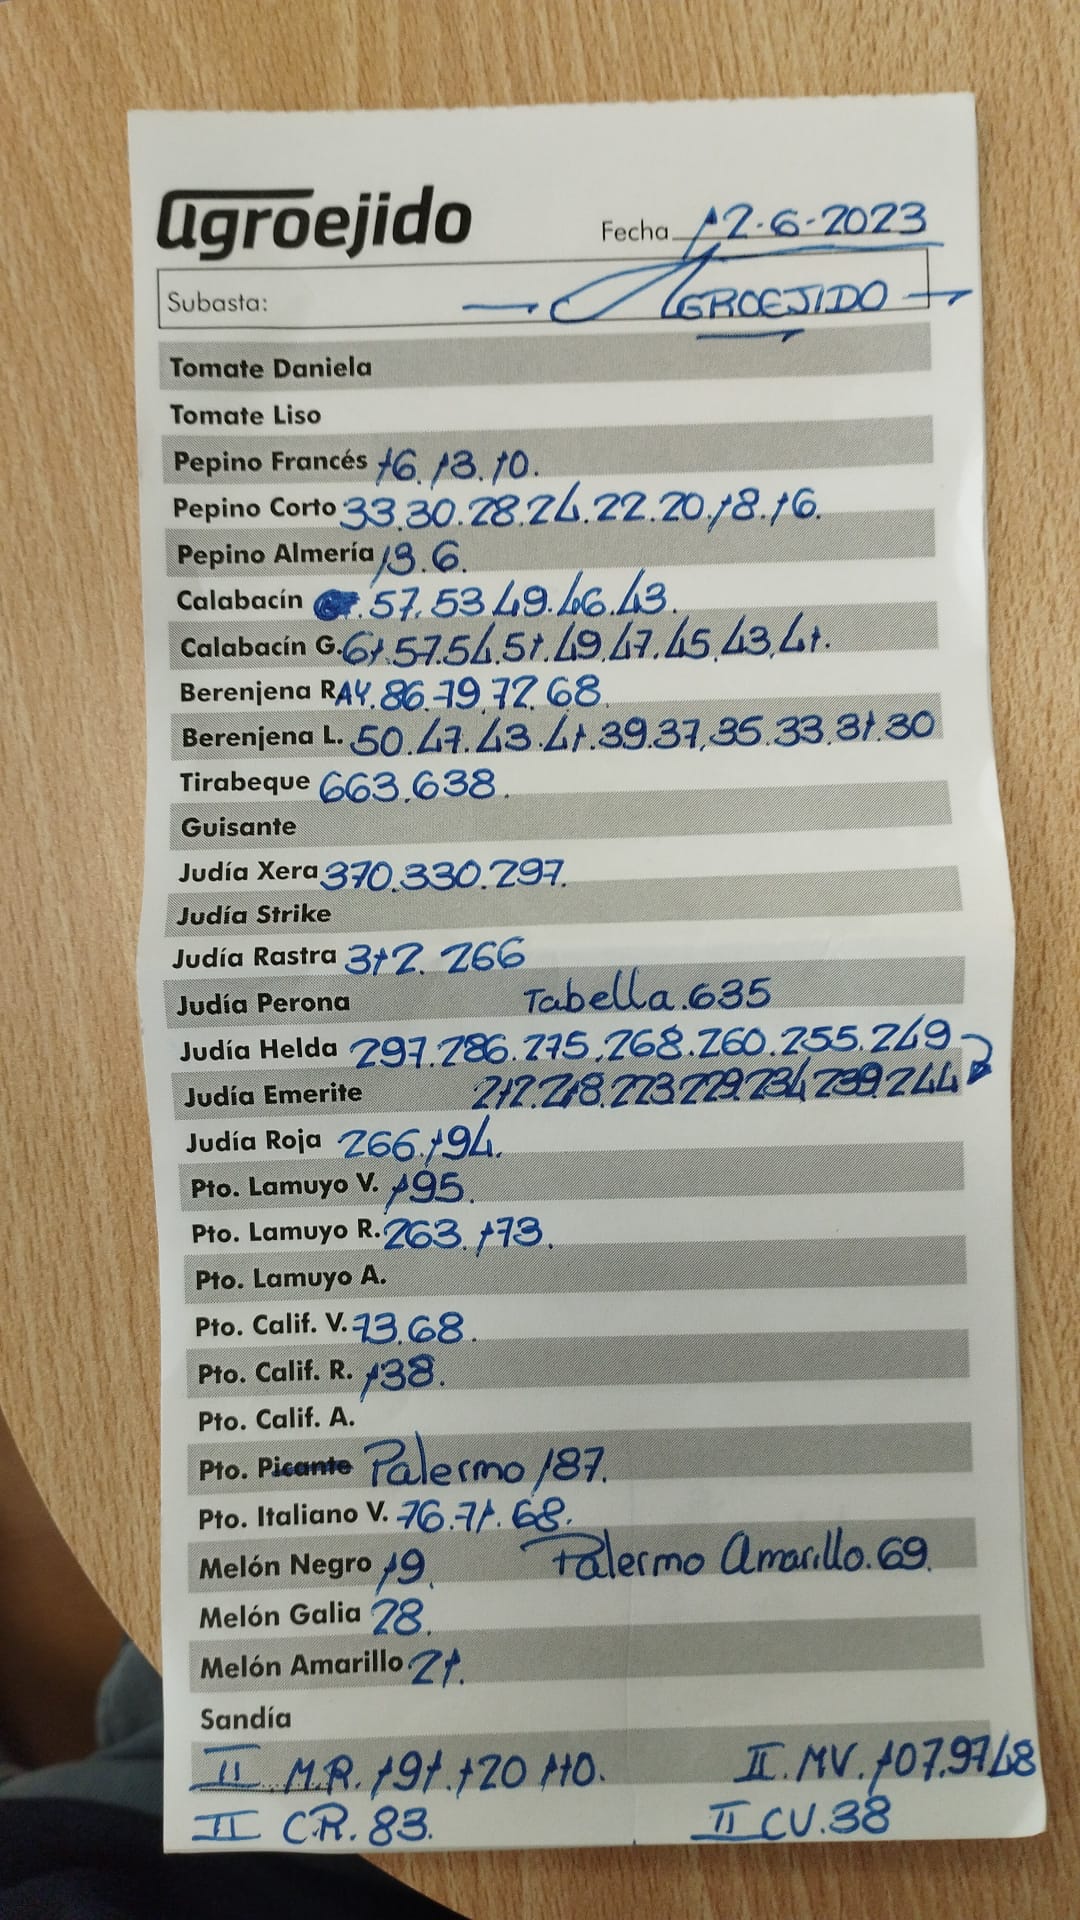 agroejido
Fecha 12-6-2023
Subasta: AGROEJIDO
Tomate Daniela
Tomate Liso
Pepino Francés 16.13.10.
Pepino Corto 33.30.28.24.22.20.18.16.
Pepino Almería 13.6.
Calabacín .57.53.49.46.43.
Calabacín G. 61.57.54.51.49.47.45.43.41.
Berenjena RAY. 86.79.72.68.
Berenjena L. 50.47.43.41.39.37.35.33.31.30
Tirabeque 663.638.
Guisante
Judía Xera 370.330.297.
Judía Strike
Judía Rastra 312. 266
Judía Perona Tabella.635
Judía Helda 297.286.275.268.260.255.249
Judía Emerite 212.218.223.229.234.239.244
Judía Roja 266.194.
Pto. Lamuyo V. 195.
Pto. Lamuyo R. 263.173.
Pto. Lamuyo A.
Pto. Calif. V. 73.68.
Pto. Calif. R. 138.
Pto. Calif. A.
Pto. Picante Palermo 187.
Pto. Italiano V. 76.71.68.
Melón Negro 19. Palermo Amarillo.69.
Melón Galia 28.
Melón Amarillo 21.
Sandía
II M.R. 191.120 110. II. MV. 107.97.48
II CR. 83. II CV.38